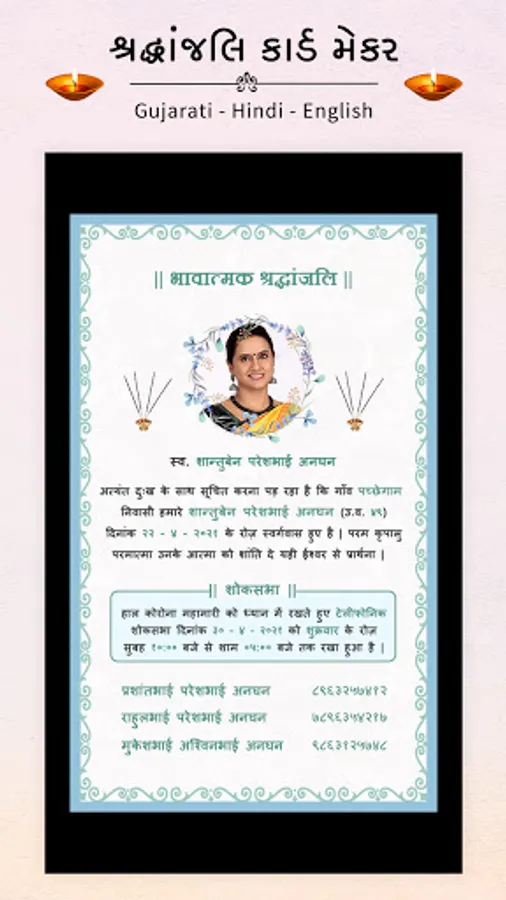 શ્રદ્ધાંજલિ કાર્ડ મેકર
Gujarati - Hindi - English
|| भावात्मक श्रद्धांजलि ||
स्व. शान्तुबेन परेशभाई अनघन
अत्यंत दुःख के साथ सूचित करना पड़ रहा है कि गाँव पच्छेगाम
निवासी हमारे शान्तुबेन परेशभाई अनघन (उ.व. ४९)
दिनांक २२ - ४ - २०२१ के रोज़ स्वर्गवास हुए है | परम कृपालु
परमात्मा उनके आत्मा को शांति दे यही ईश्वर से प्रार्थना |
|| शोकसभा ||
हाल कोरोना महामारी को ध्यान में रखते हुए टेलीफोनिक
शोकसभा दिनांक ३० - ४ - २०२१ को शुक्रवार के रोज़
सुबह १०:०० बजे से शाम ०५:०० बजे तक रखा हुआ है |
प्रशांतभाई परेशभाई अनघन ८९६३२५७४१२
राहुलभाई परेशभाई अनघन ७८९६३५४२१७
मुकेशभाई अश्विनभाई अनघन ९८६३१२५७४८